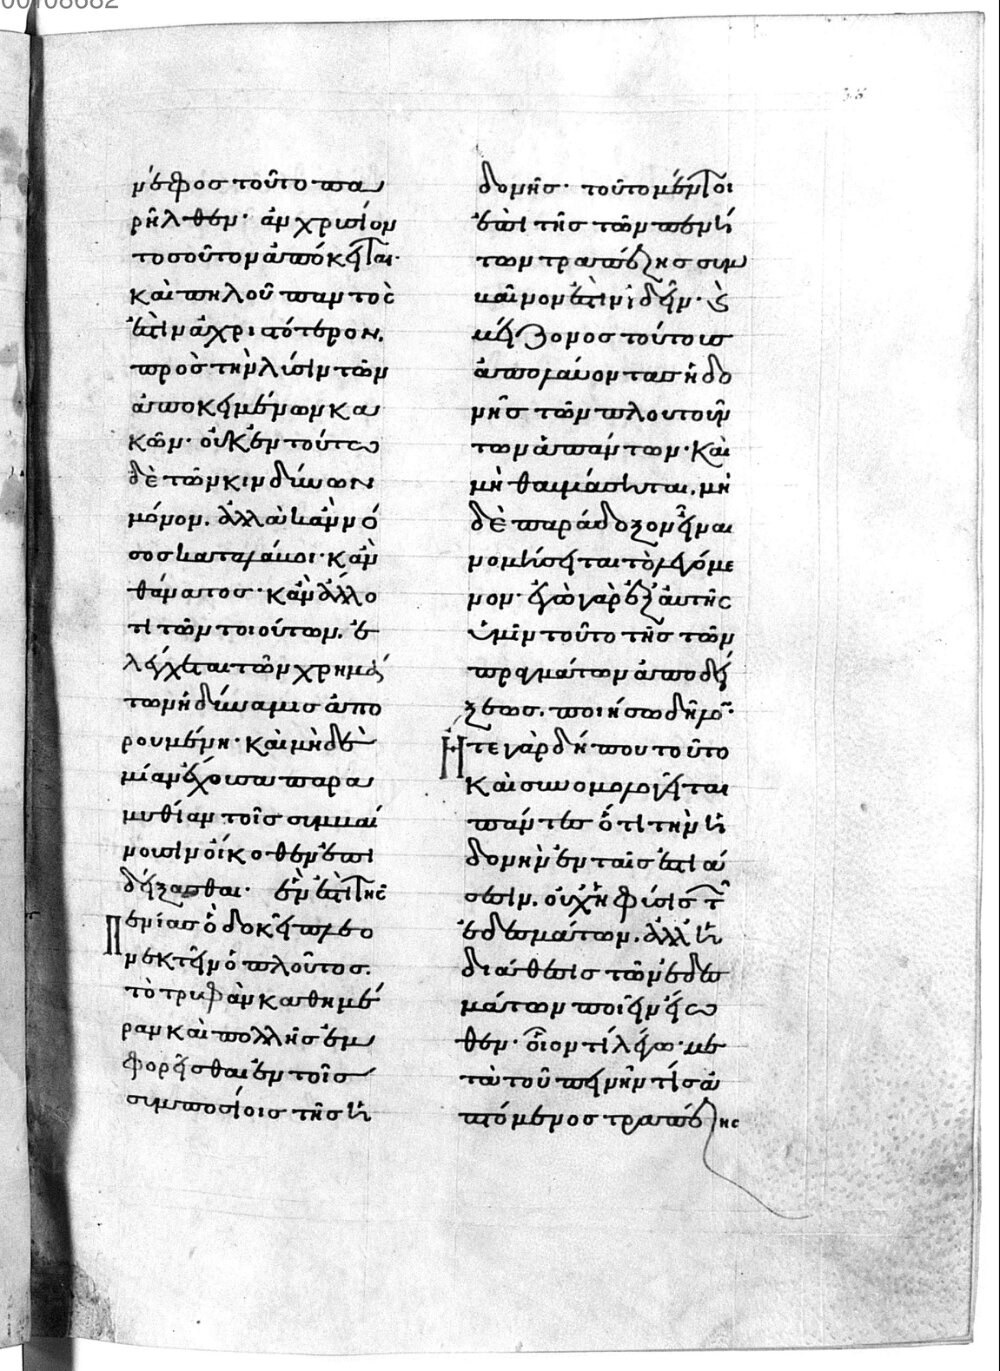 00108682
μέρος τοῦτο πα
ρῆλθεν· ἂν χρυσίον
τοσοῦτον ἀπόκειται·
καὶ πηλοῦ παντὸς
ἐστὶν ἀχριστότερον.
πρὸς τὴν λύσιν τῶν
ἀποκειμένων κα
κῶν· οὐκ ἐν τούτω
δὲ τῶν κινδύνων
μόνον. ἀλλὰ κἂν νό
σος καταλάμοι· κἂν
θάνατος· κἂν ἄλλο
τὶ τῶν τοιούτων. ἐ
λέγχεται τῶν χρημά
των ἡ δύναμις ἀπο
ρουμένη· καὶ μηδὲ
μίαν ἔχουσα παρα
μυθίαν τοῖς συμβαί
νουσιν οἴκοθεν ἐπι
δείξασθαι· ἓν ἐστὶ τῆς
πενίας ὃ δοκεῖ πλέο
νεκτεῖν ὁ πλοῦτος.
τὸ τρυφᾶν καθημέ
ραν καὶ πολλῆς ἐμ
φορεῖσθαι ἐν τοῖς
συμποσίοις τῆς ἡ
δονῆς· τοῦτο μέντοι
ἐπὶ τῆς τῶν πενή
των τραπέζης συμ
βαῖνον ἐστὶν ἰδεῖν· καὶ
μείζονος τούτοις
ἀπολαύοντας ἡδο
νῆς τῶν πλουτούν
των ἁπάντων· καὶ
μὴ θαυμάσηται. μη
δὲ παράδοξον εἶναι
νομίσηται τὸ λεγόμε
νον· ἐγὼ γὰρ ἐξ αὐτῆς
ὑμῖν τοῦτο τῆς τῶν
πραγμάτων ἀποδεί
ξεως. ποιήσω δῆλον·
ἴστε γὰρ δήπου τοῦτο
καὶ συνομολογεῖται
πάντες ὅτι τὴν ἡ
δονὴν ἐν ταῖς ἑστιά
σεσιν. οὐχ ἡ φύσις τῶν
ἐδεσμάτων. ἀλλ' ἡ
διάθεσις τῶν ἐδεσ
μάτων ποιεῖν εἴω
θεν· οἷον τί λέγω· με
τὰ τοῦ πεινῆν τίς ἁ
πτόμενος τραπέζης